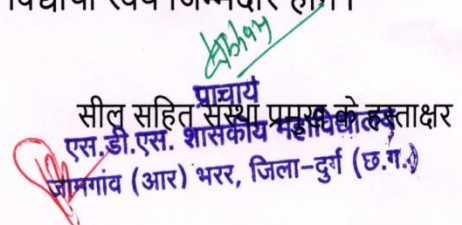 विद्यार्थी स्वयं जिम्मेदार होंगे।
प्राचार्य
सील सहित संस्था प्रमुख के हस्ताक्षर
एस.डी.एस. शासकीय महाविद्यालय
जामगांव (आर) भरर, जिला-दुर्ग (छ.ग.)